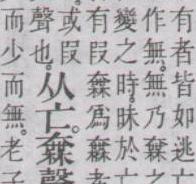 有者皆如逃亡
作無。無乃橆之
變之時。昧於亡
有叚橆爲𣠮者
或叚
聲也。
从亡。橆聲
而少而無。老子